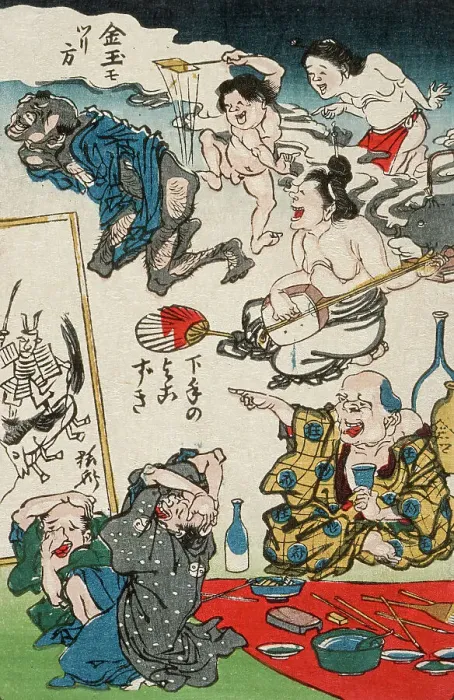 金玉モ
つり
方
下手の
よこ
ずき